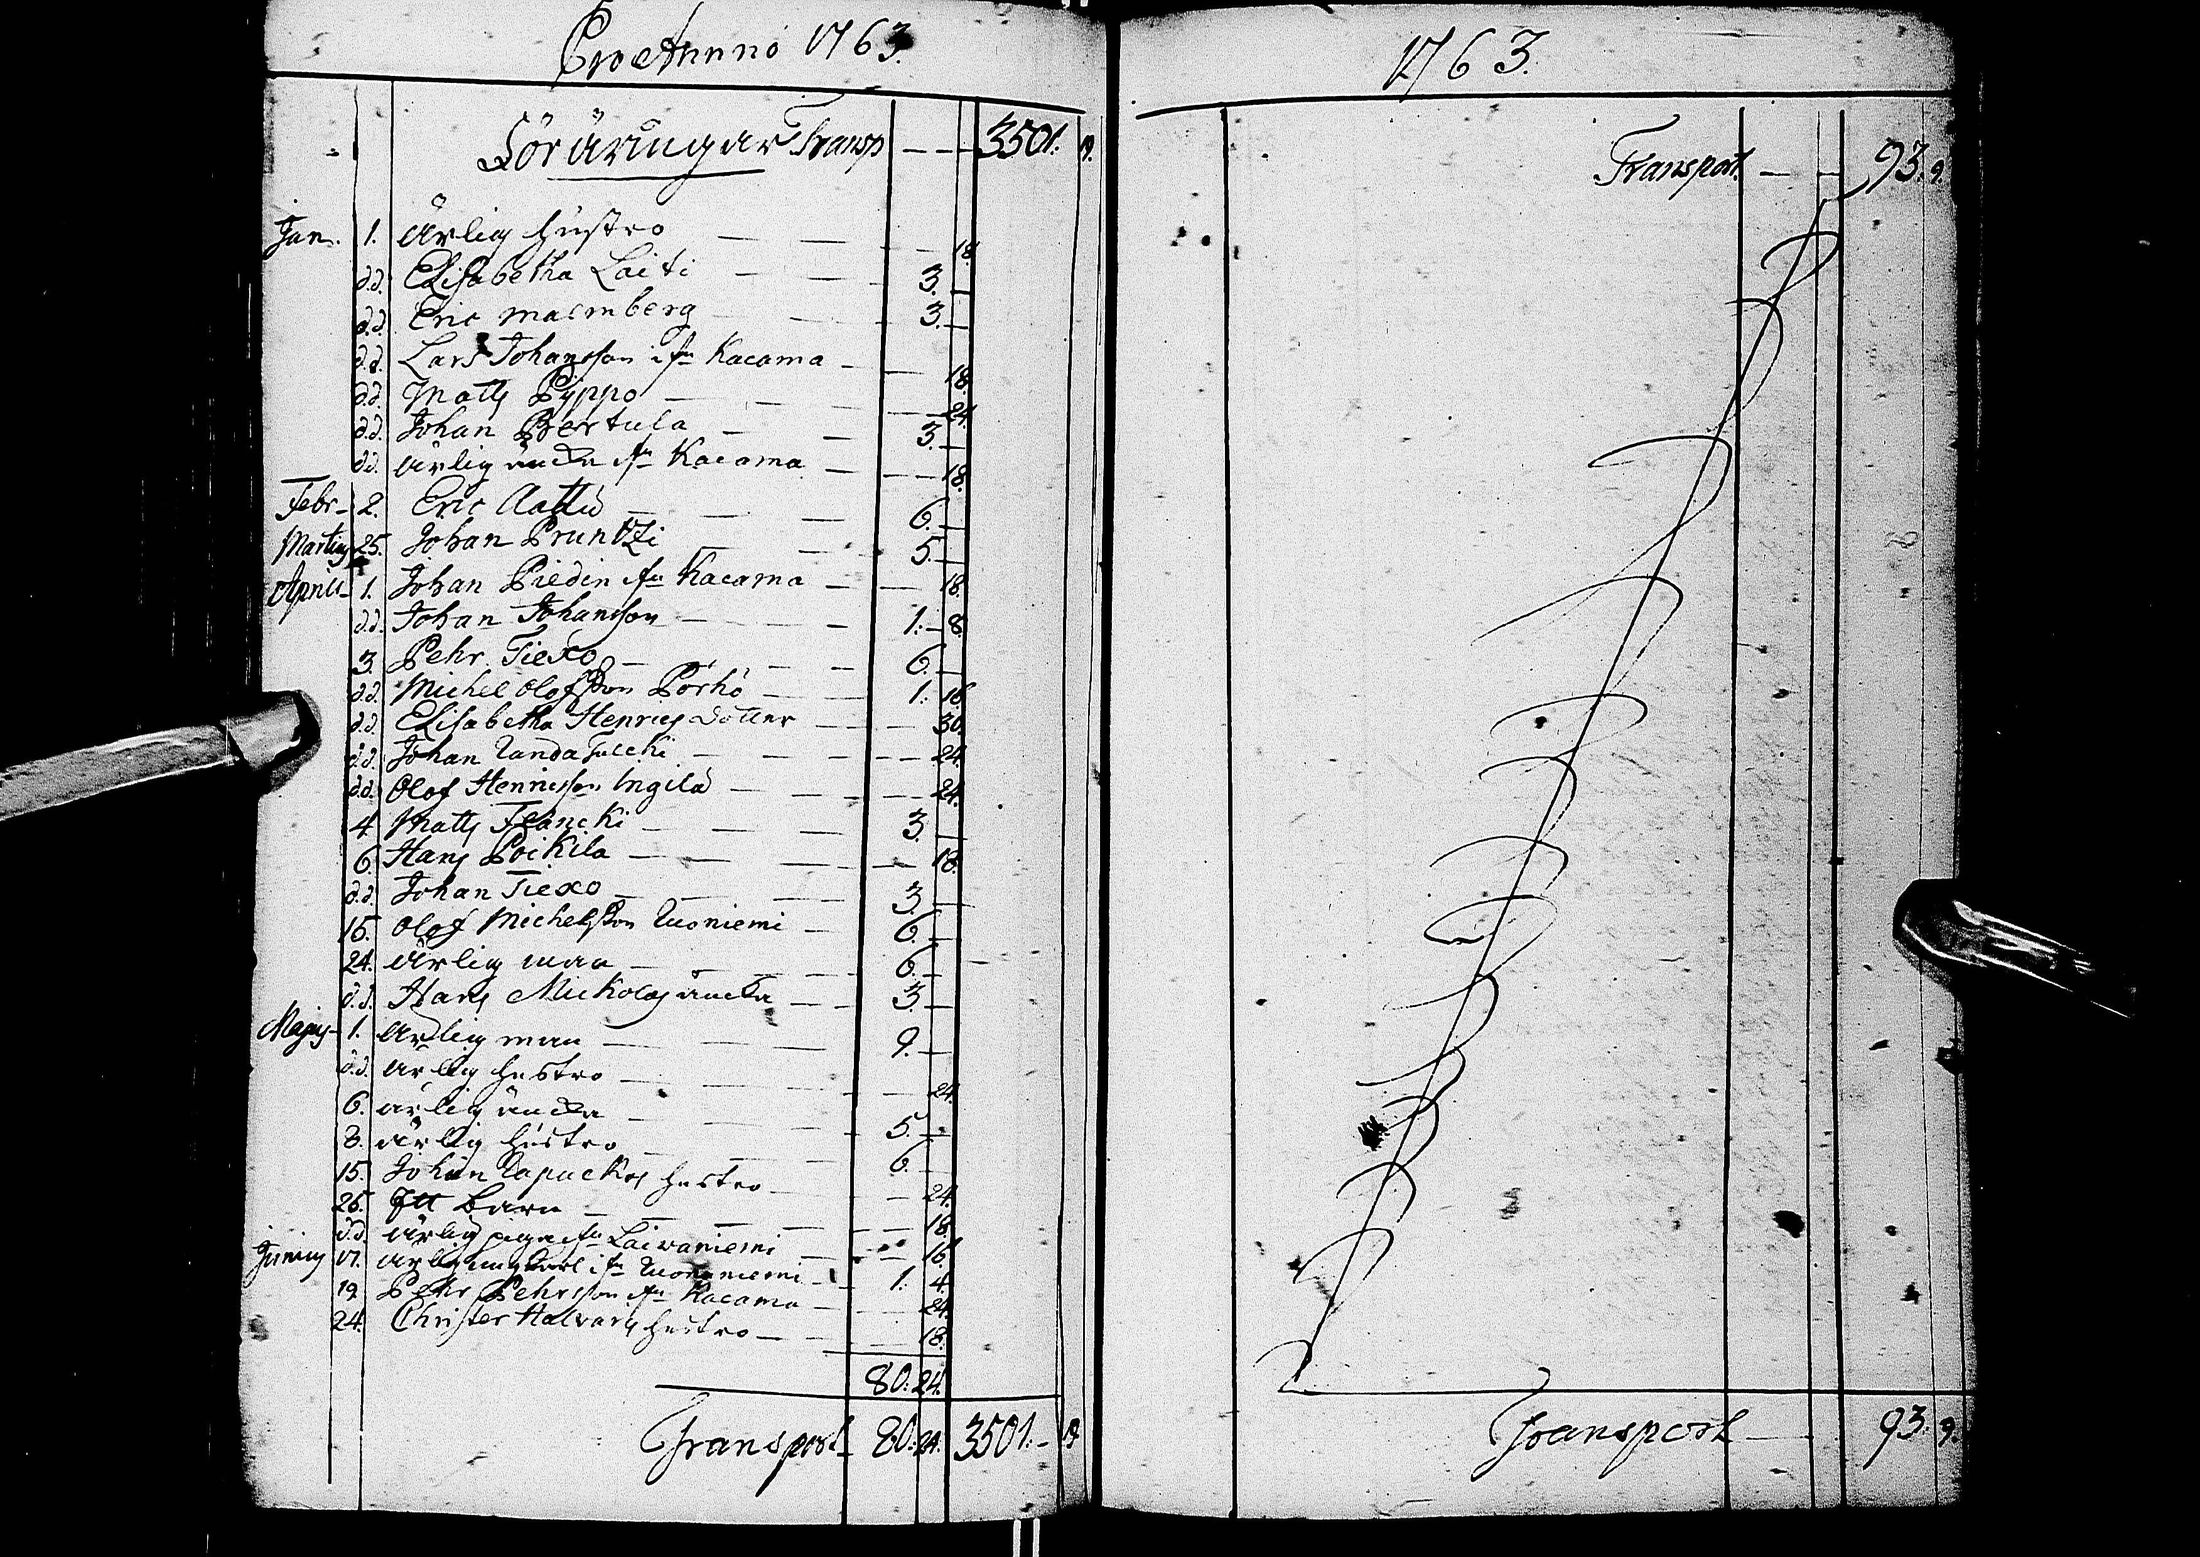 Pro Anno 1763.
Föräringar Transp — — 3501. 19.
Jan. 1. Ärlig hustro — — — 18.
d.d. Elisabetha Laiti — — 3. —
d.d. Eric Malmberg — — 3. —
d.d. Lars Johansson ifrn Kacama — — 18.
d.d. Matts Pyppo — — — 24.
d.d. Johan Bertula — — 3. —
d.d. ärlig äncka ifrn Kacama — — 18.
Febr. 2. Eric Aattu — — 6. —
Martius 25. Johan Pruntzi — — 5. —
Aprill 1. Johan Piedin ifrn Kacama — — 18.
d.d. Johan Johansson — — 1: 8.
3. Pehr Tiexo — — 6. —
d.d. Michel Olofsson Pörhö — 1: 16.
d.d. Elisabetha Henrics dotter — — 30.
d.d. Johan — — 24.
d.d. Olof Hennesson Ingilä — — 24.
4. Matts Fläncki — — 3. —
6. Hans Poikila — — — 18.
d.d. Johan Tiexo — — 3. —
16. Olof Michelsson Kuoniemi — 6. —
24. ärlig man — — 6. —
d.d. Hans Mickolas äncka — 3. —
Majus 1. ärlig man — — 9. —
d.d. ärlig hustro — — — 24.
6. ärlig äncka — — 5. —
8. ärlig hustro — — 6. —
15. Johan Lapuckas hustro — — 24.
26. Ett barn — — — 18.
d.d. ärlig piga ifrn Laiwaniemi — — 16.
Junius 17. ärlig ungkarl ifrn Kuoniemi — 1: 4.
19. Pehr Pehrsson ifrn Kacama — — 24.
24. Christer Halvars hustro — — 18.
80: 24.
Transport 80: 24. 3501: — 19.
1763.
Transport. — — 93. 9.
Transport — — 93. 9.